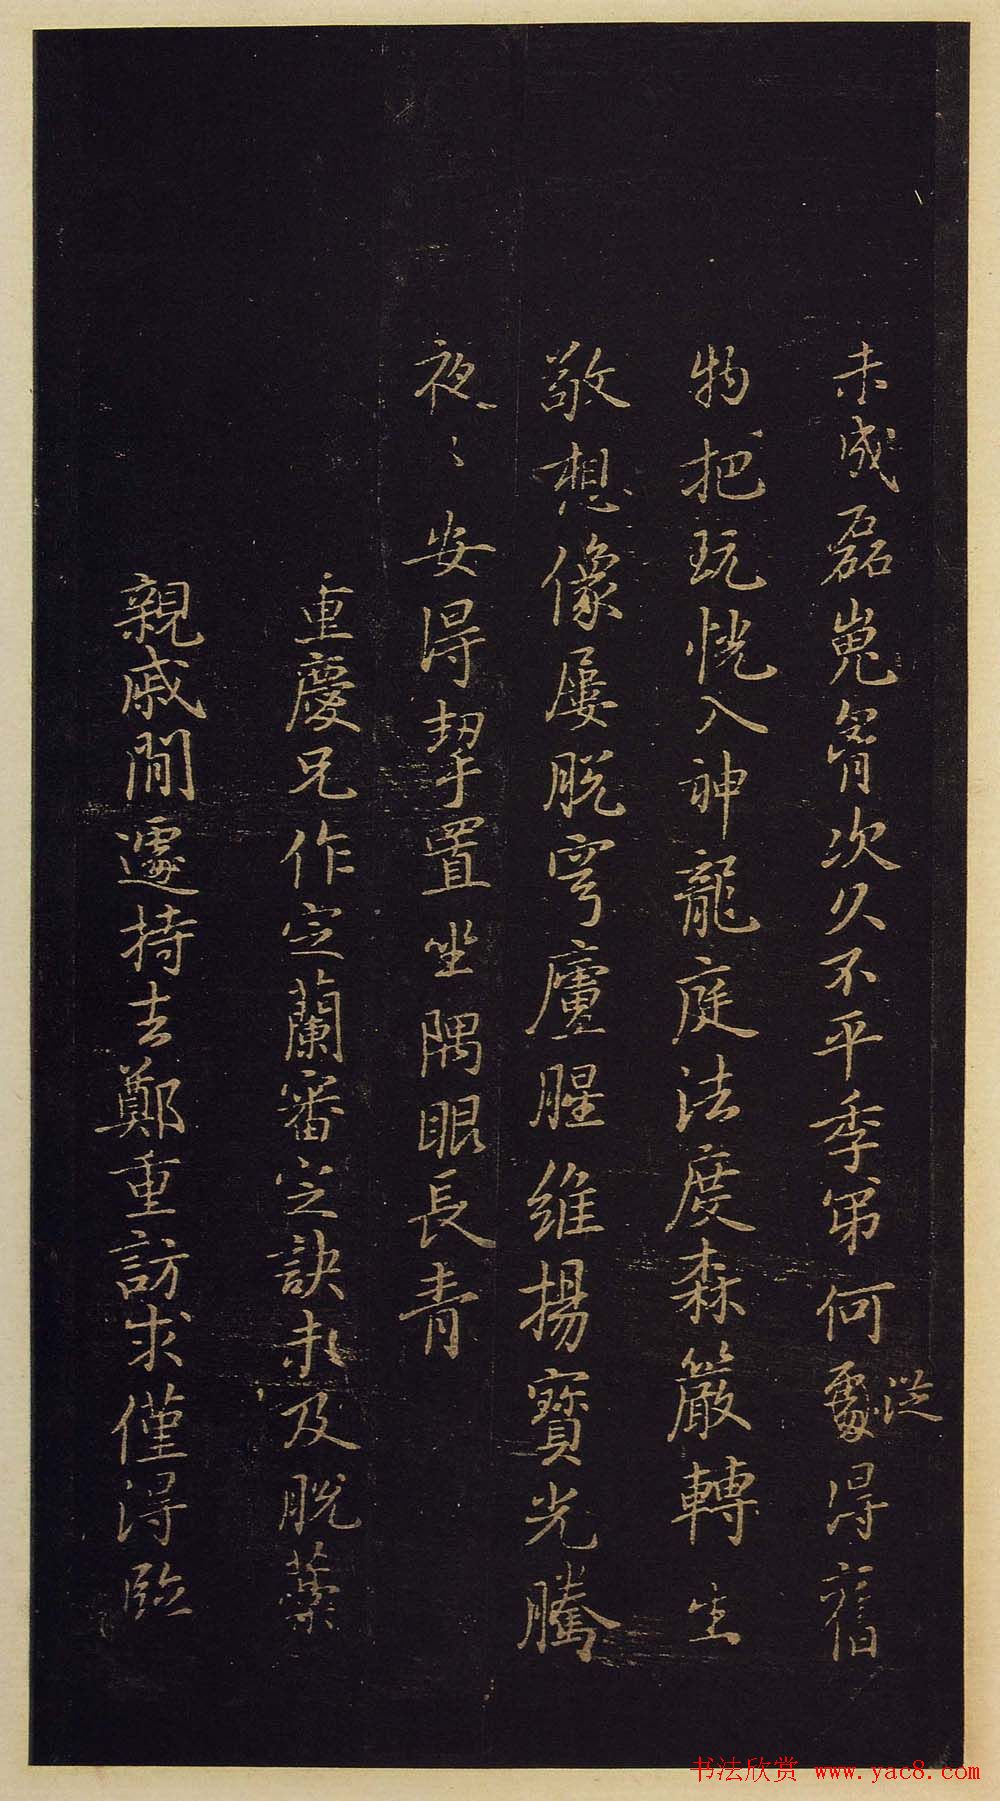 未成磊嵬胷次久不平季弟何處得舊
從
物把玩恍入神龍庭法度森嚴轉生
敬想像屢脱穹廬腥維揚寶光騰
夜〻安得挈置坐隅眼長青
重慶兄作定蘭審定訣未及脱藁
親戚間遽持去鄭重訪求僅得臨
书法欣赏 www.yac8.com